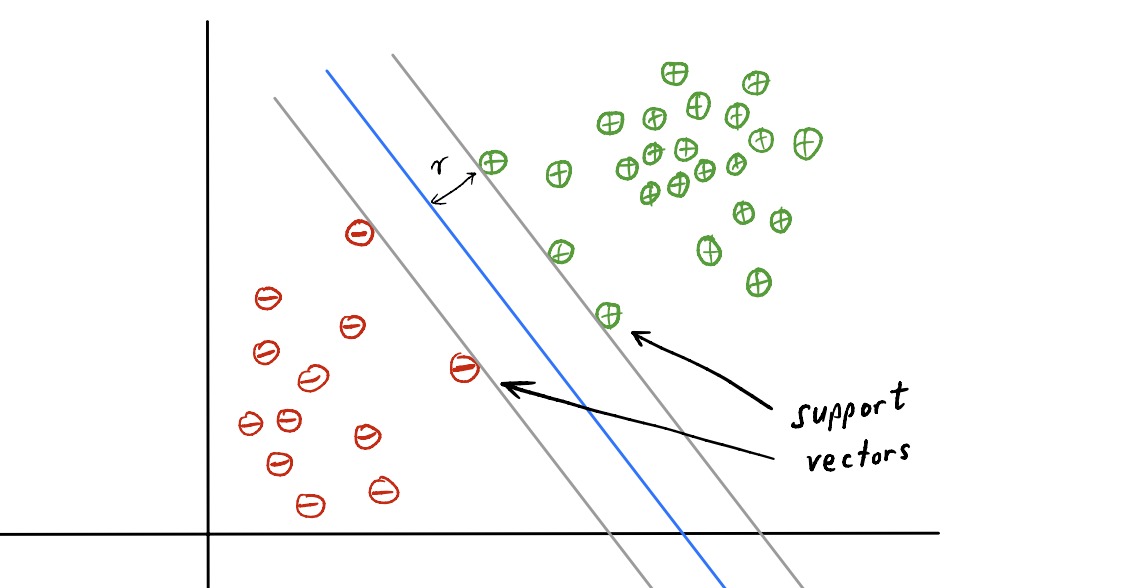 r
support
vectors